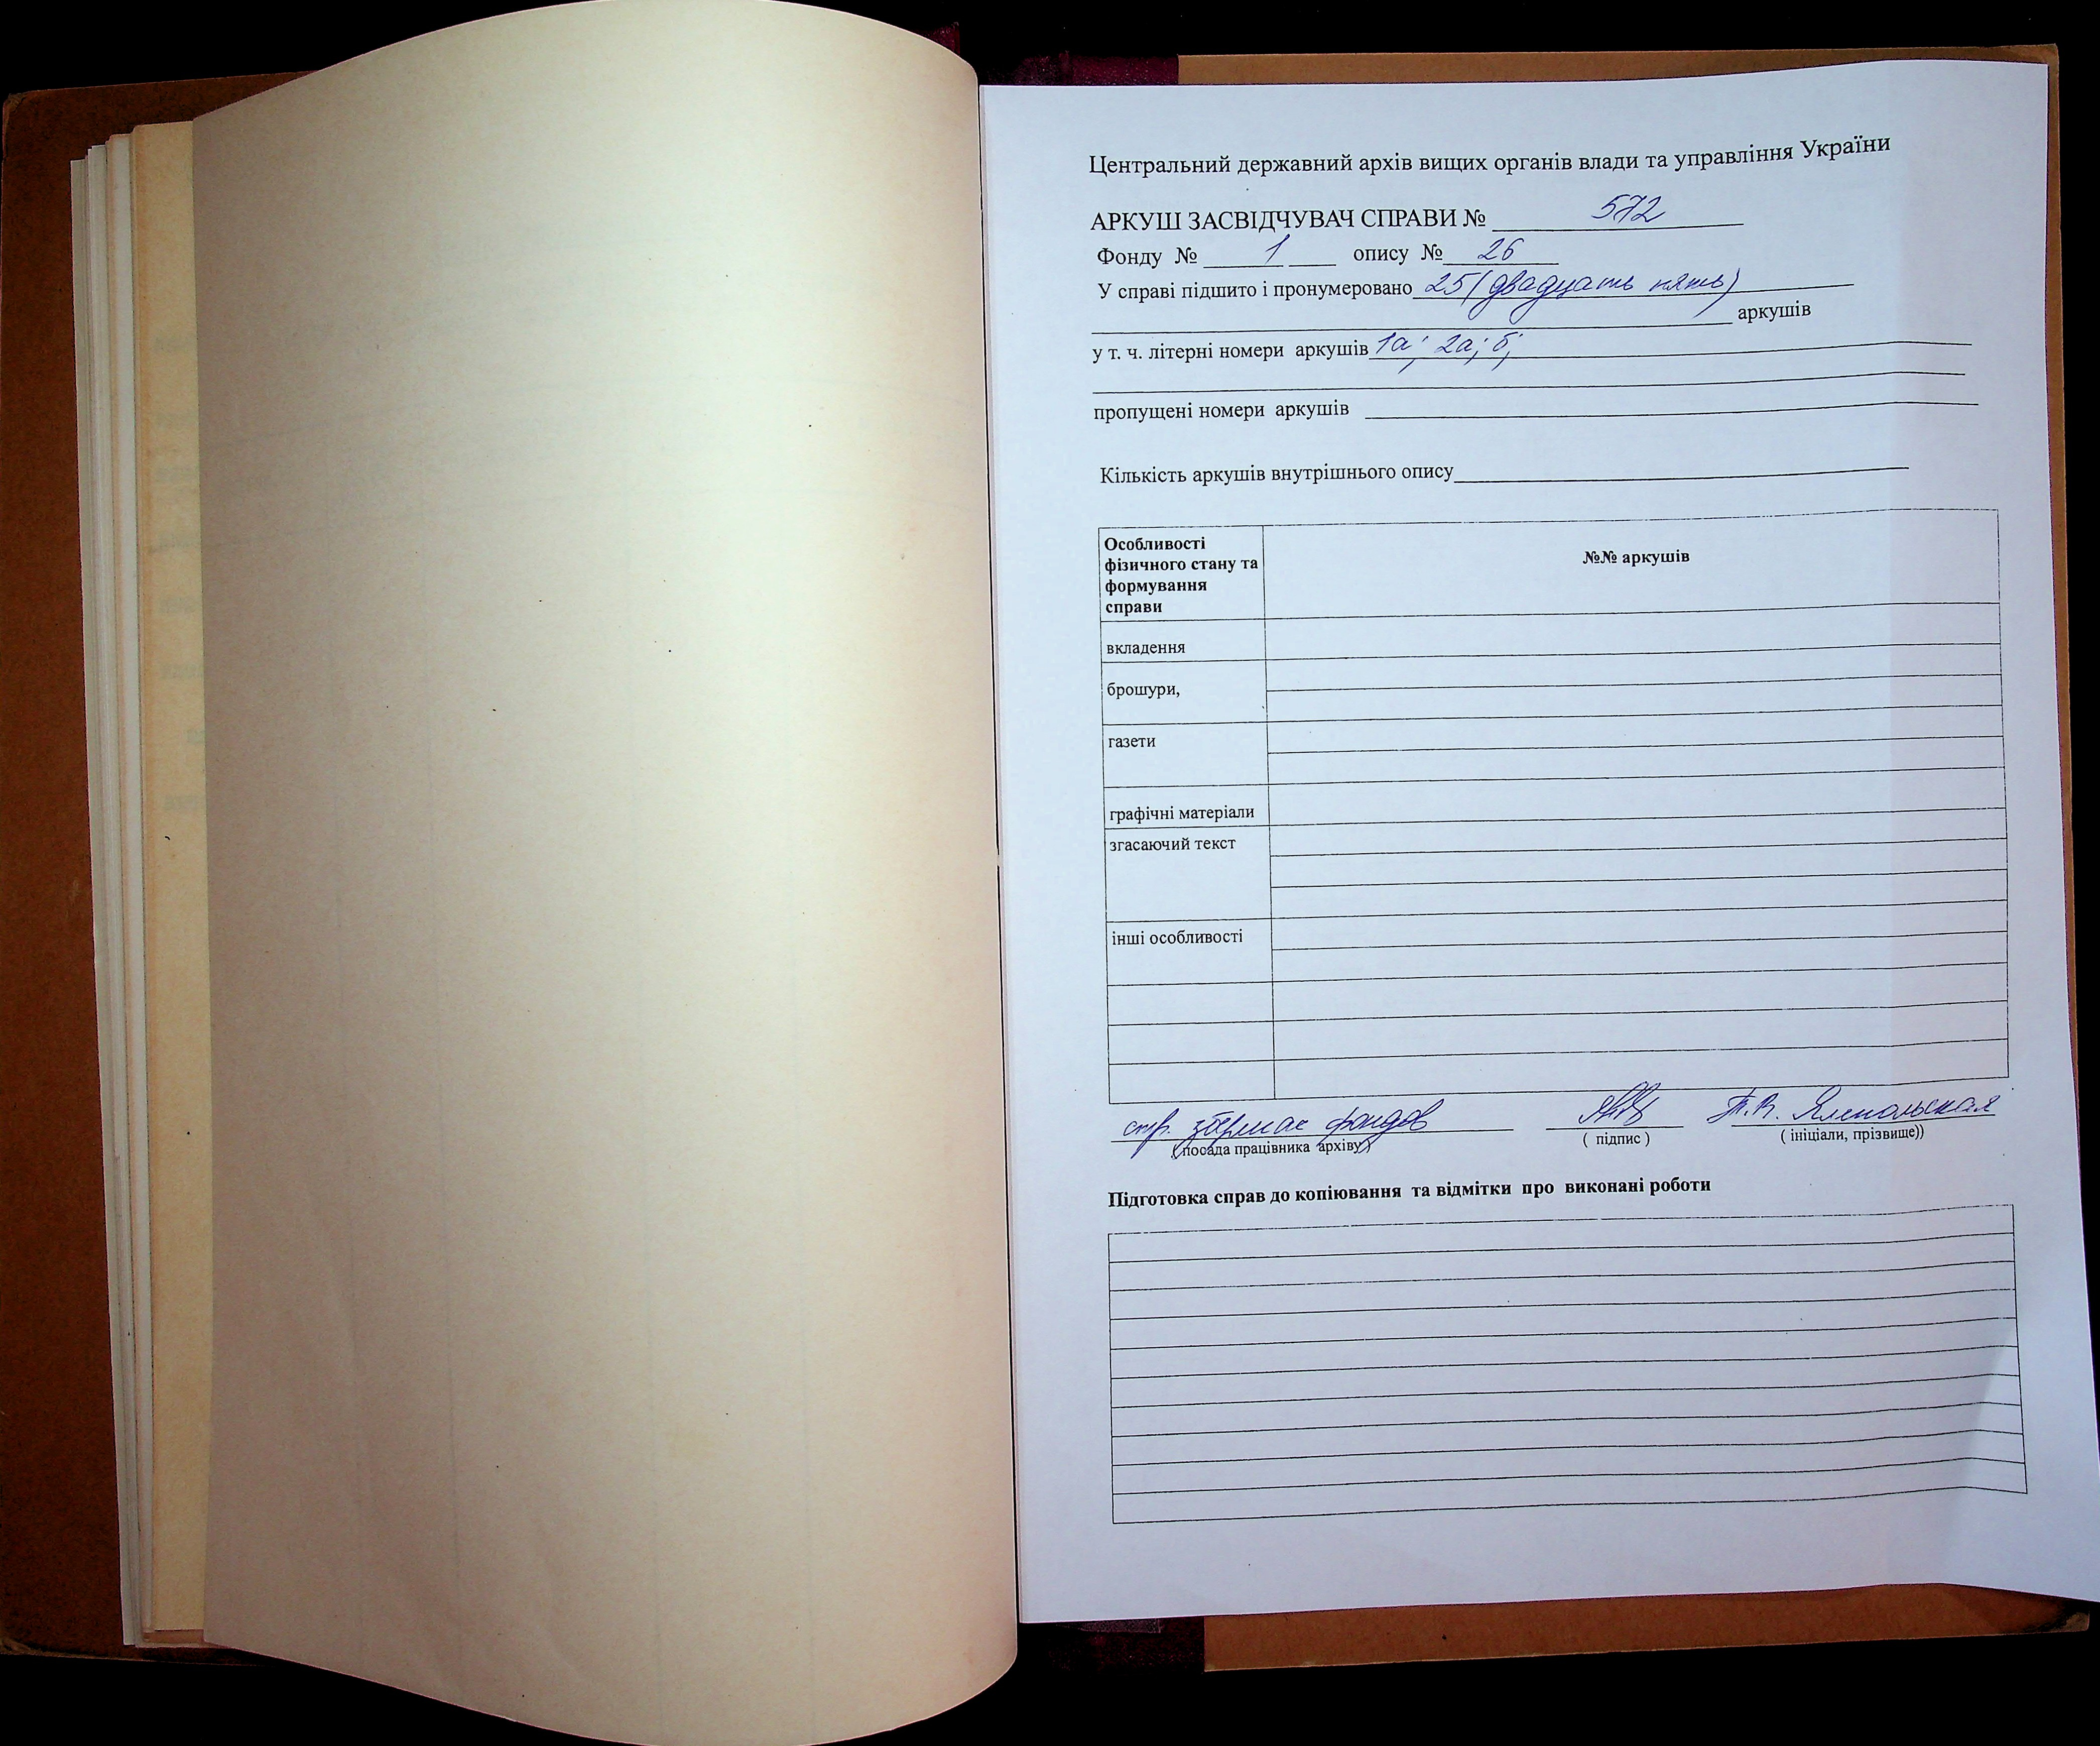 Центральний державний архів вищих органів влади та управління України
АРКУШ ЗАСВІДЧУВАЧ СПРАВИ № 572
Фонду № 1 опису № 26
У справі підшито і пронумеровано 25 (двадцать пять)
аркушів
у т. ч. літерні номери аркушів 1а; 2а; б;
пропущені номери аркушів
Кількість аркушів внутрішнього опису
Особливості
фізичного стану та
формування
справи
№№ аркушів
вкладення
брошури,
газети
графічні матеріали
згасаючий текст
інші особливості
фондов
( посада працівника архіву)
( підпис )
( ініціали, прізвище))
Підготовка справ до копіювання та відмітки про виконані роботи